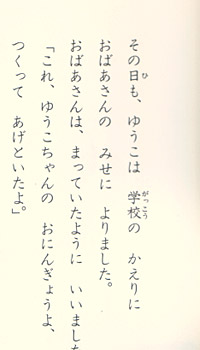 その日も、ゆうこは　学校の　かえりに
おばあさんの　みせに　よりました。
おばあさんは、まっていたように　いいました
「これ、ゆうこちゃんの　おにんぎょうよ、
つくって　あげといたよ」。